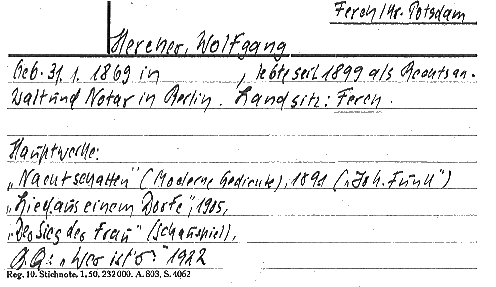 Ferch/Kr. Potsdam
Hercher, Wolfgang
Geb. 31. 1. 1869 in , lebte seit 1899 als Rechtsan-
walt und Notar in Berlin. Landsitz: Ferch.
Hauptwerke:
„Nachtschatten" (Moderne Gedichte), 1891 („Joh. Fünll")
„Lied aus einem Dorfe", 1905,
„Der Sieg der Frau" (Schauspiel),
„Wer ist's?" 1922
Reg. 10. Stichnote, 1, 50, 232 000. A. 803, S. 4062